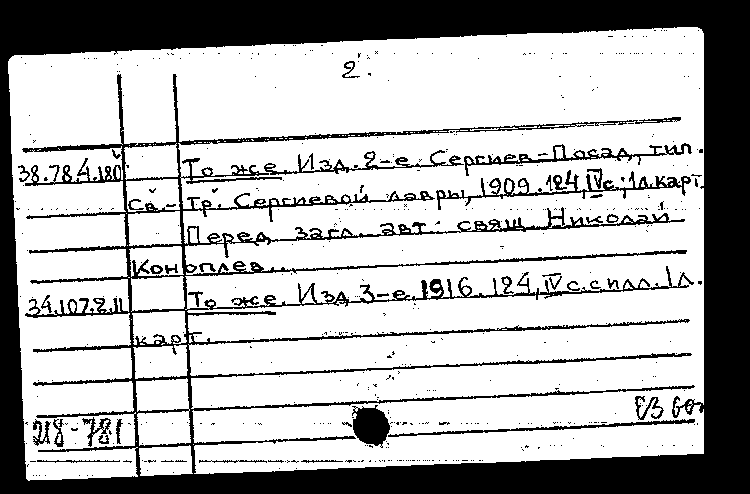 2.
38.78.4.180 То же. Изд. 2-е. Сергиев-Посад, тип.
Св.-Тр. Сергиевой лавры, 1909. 124, IV с.; 1л. карт.
Перед загл. авт: свящ. Николай
Коноплев...
34.107.2.11 То же. Изд 3-е. 1916. 124, IV с. с илл. 1 л.
карт.
218-781